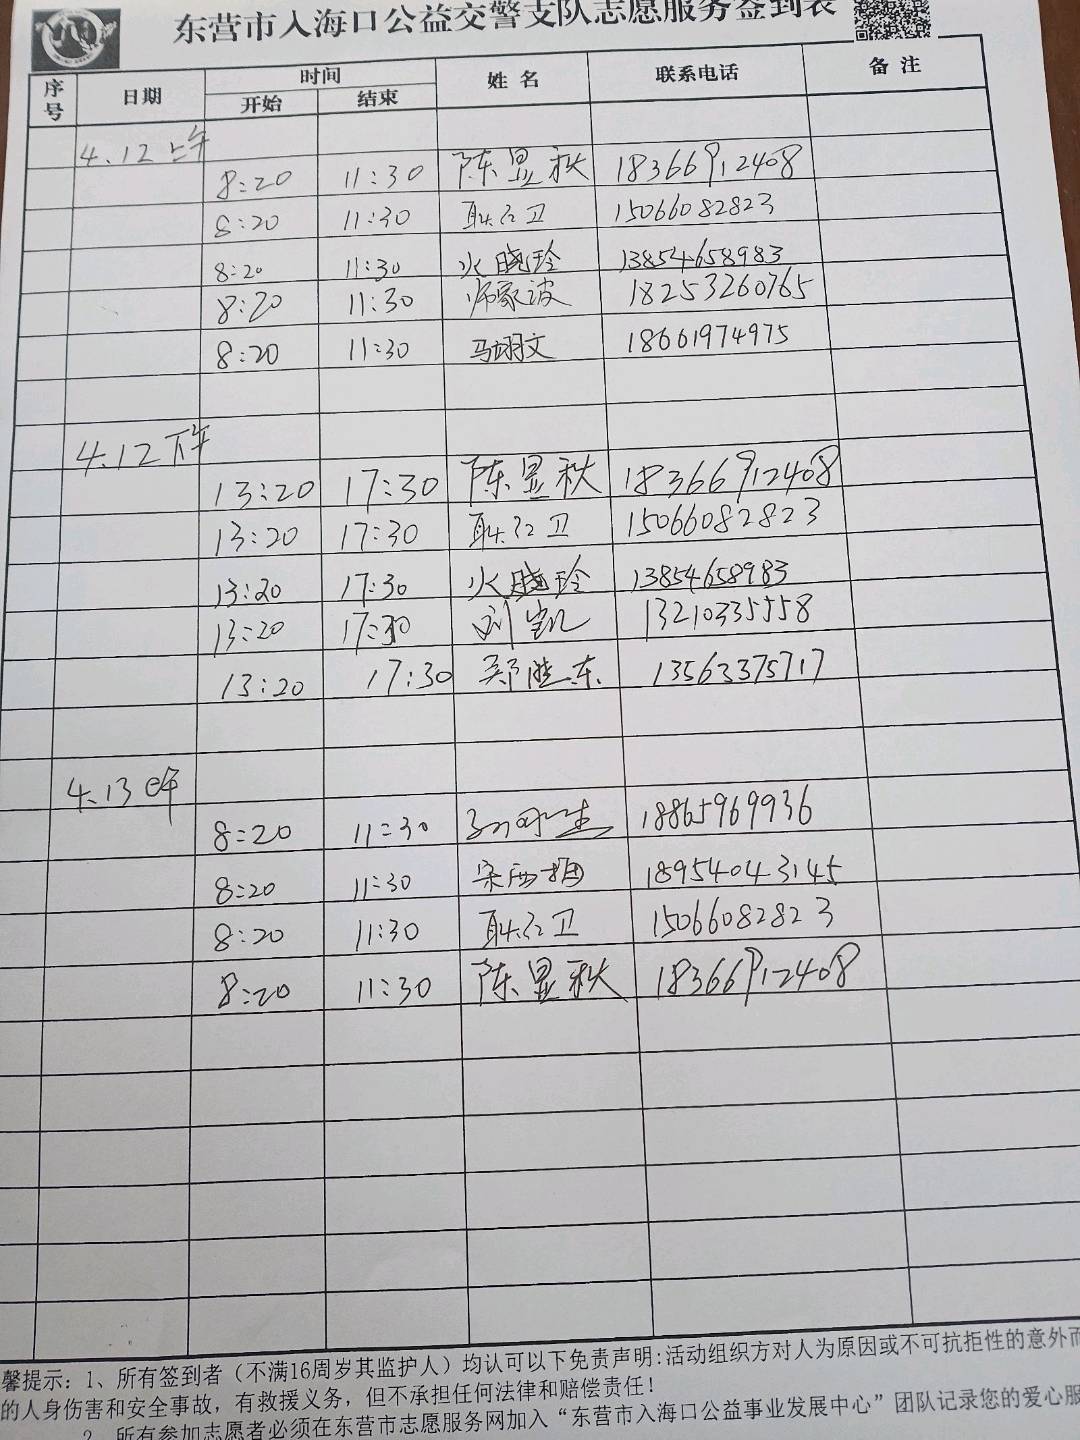 东营市入海口公益交警支队志愿服务签到表
序号 日期 时间 姓名 联系电话 备注
开始 结束
4.12上午
8:20 11:30 陈昱秋 18366912408
8:20 11:30 耿红卫 15066082823
8:20 11:30 火晓玲 13854658983
8:20 11:30 师家波 18253260765
8:20 11:30 马翊文 18661974975
4.12下午
13:20 17:30 陈昱秋 18366912408
13:20 17:30 耿红卫 15066082823
13:20 17:30 火晓玲 13854658983
13:20 17:30 刘凯 13210335558
13:20 17:30 郑胜东 13563375717
4.13上午
8:20 11:30 18865969936
8:20 11:30 宋西梅 18954043145
8:20 11:30 耿红卫 15066082823
8:20 11:30 陈昱秋 18366912408
馨提示：1、所有签到者（不满16周岁其监护人）均认可以下免责声明:活动组织方对人为原因或不可抗拒性的意外而
的人身伤害和安全事故，有救援义务，但不承担任何法律和赔偿责任！
2、所有参加志愿者必须在东营市志愿服务网加入“东营市入海口公益事业发展中心”团队记录您的爱心服